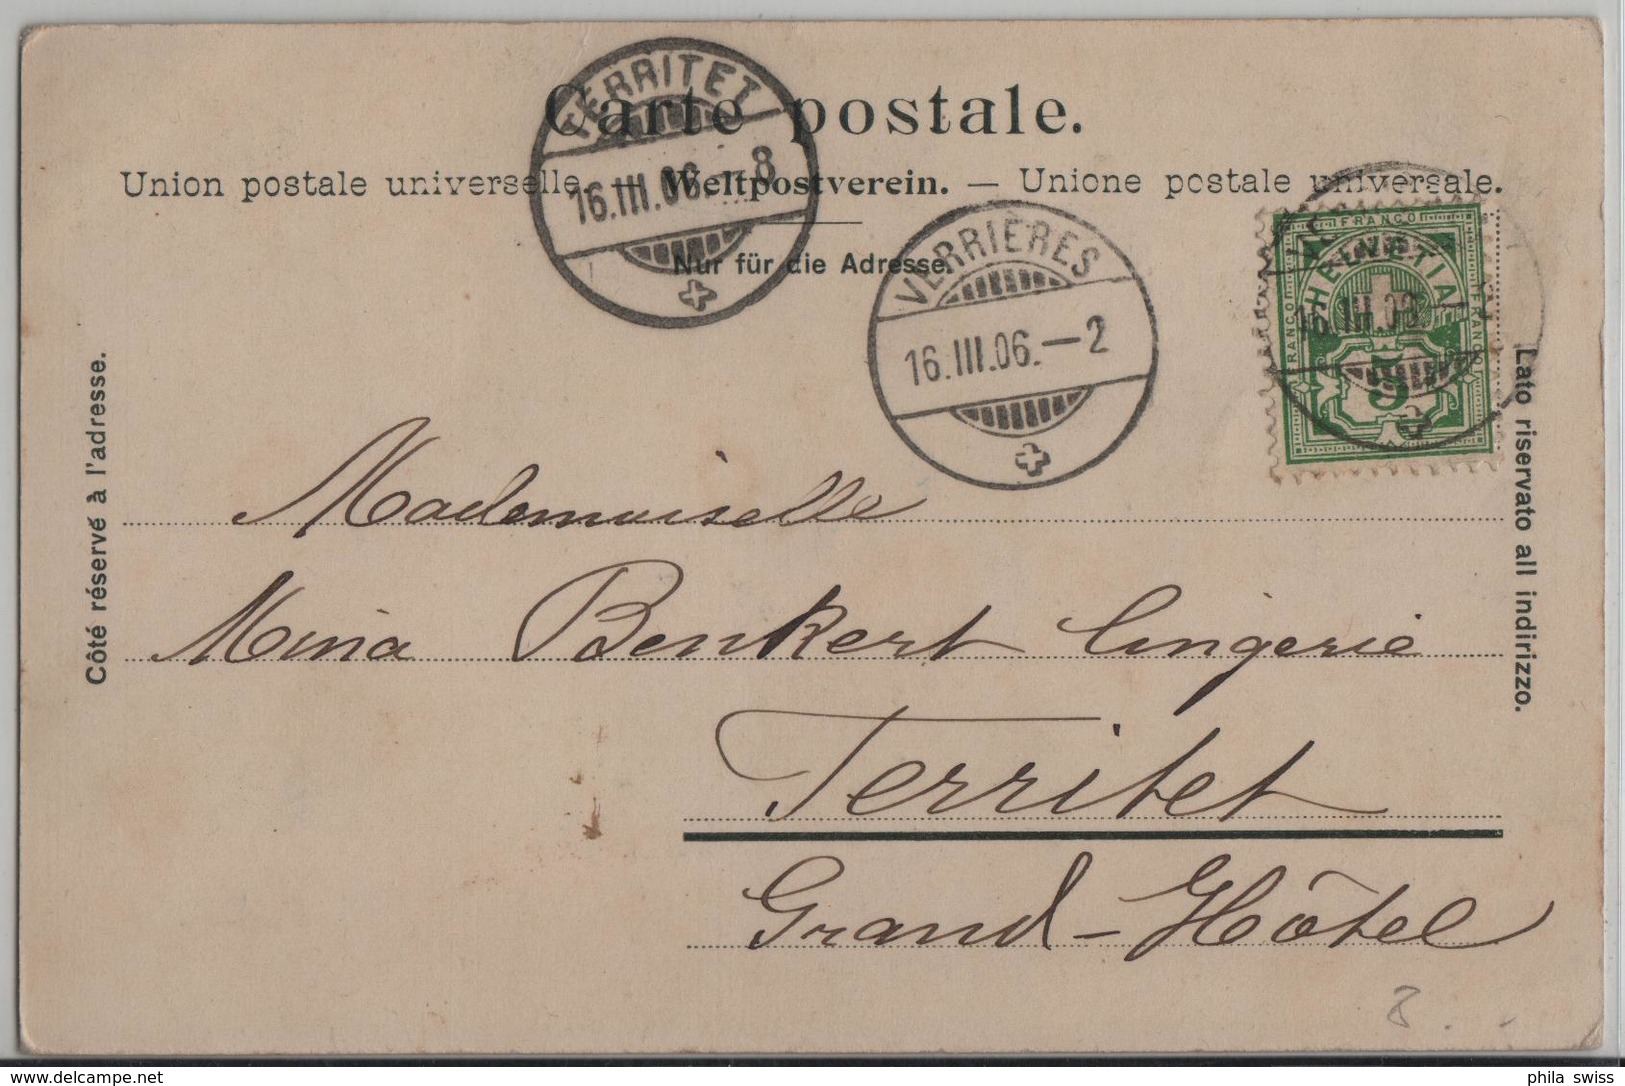 TERRITET
16.III.06.–8
Carte postale.
Union postale universelle. — Weltpostverein. — Unione postale universale.
Nur für die Adresse.
VERRIÈRES
16.III.06.–2
FRANCO
HELVETIA
FRANCO
FRANCO
16.III.06.–
5
Côté réservé à l'adresse.
Lato riservato all indirizzo.
Mademoiselle
Mina Benkert lingerie
Territet
Grand-Hôtel
8
phila_swiss
www.delcampe.net